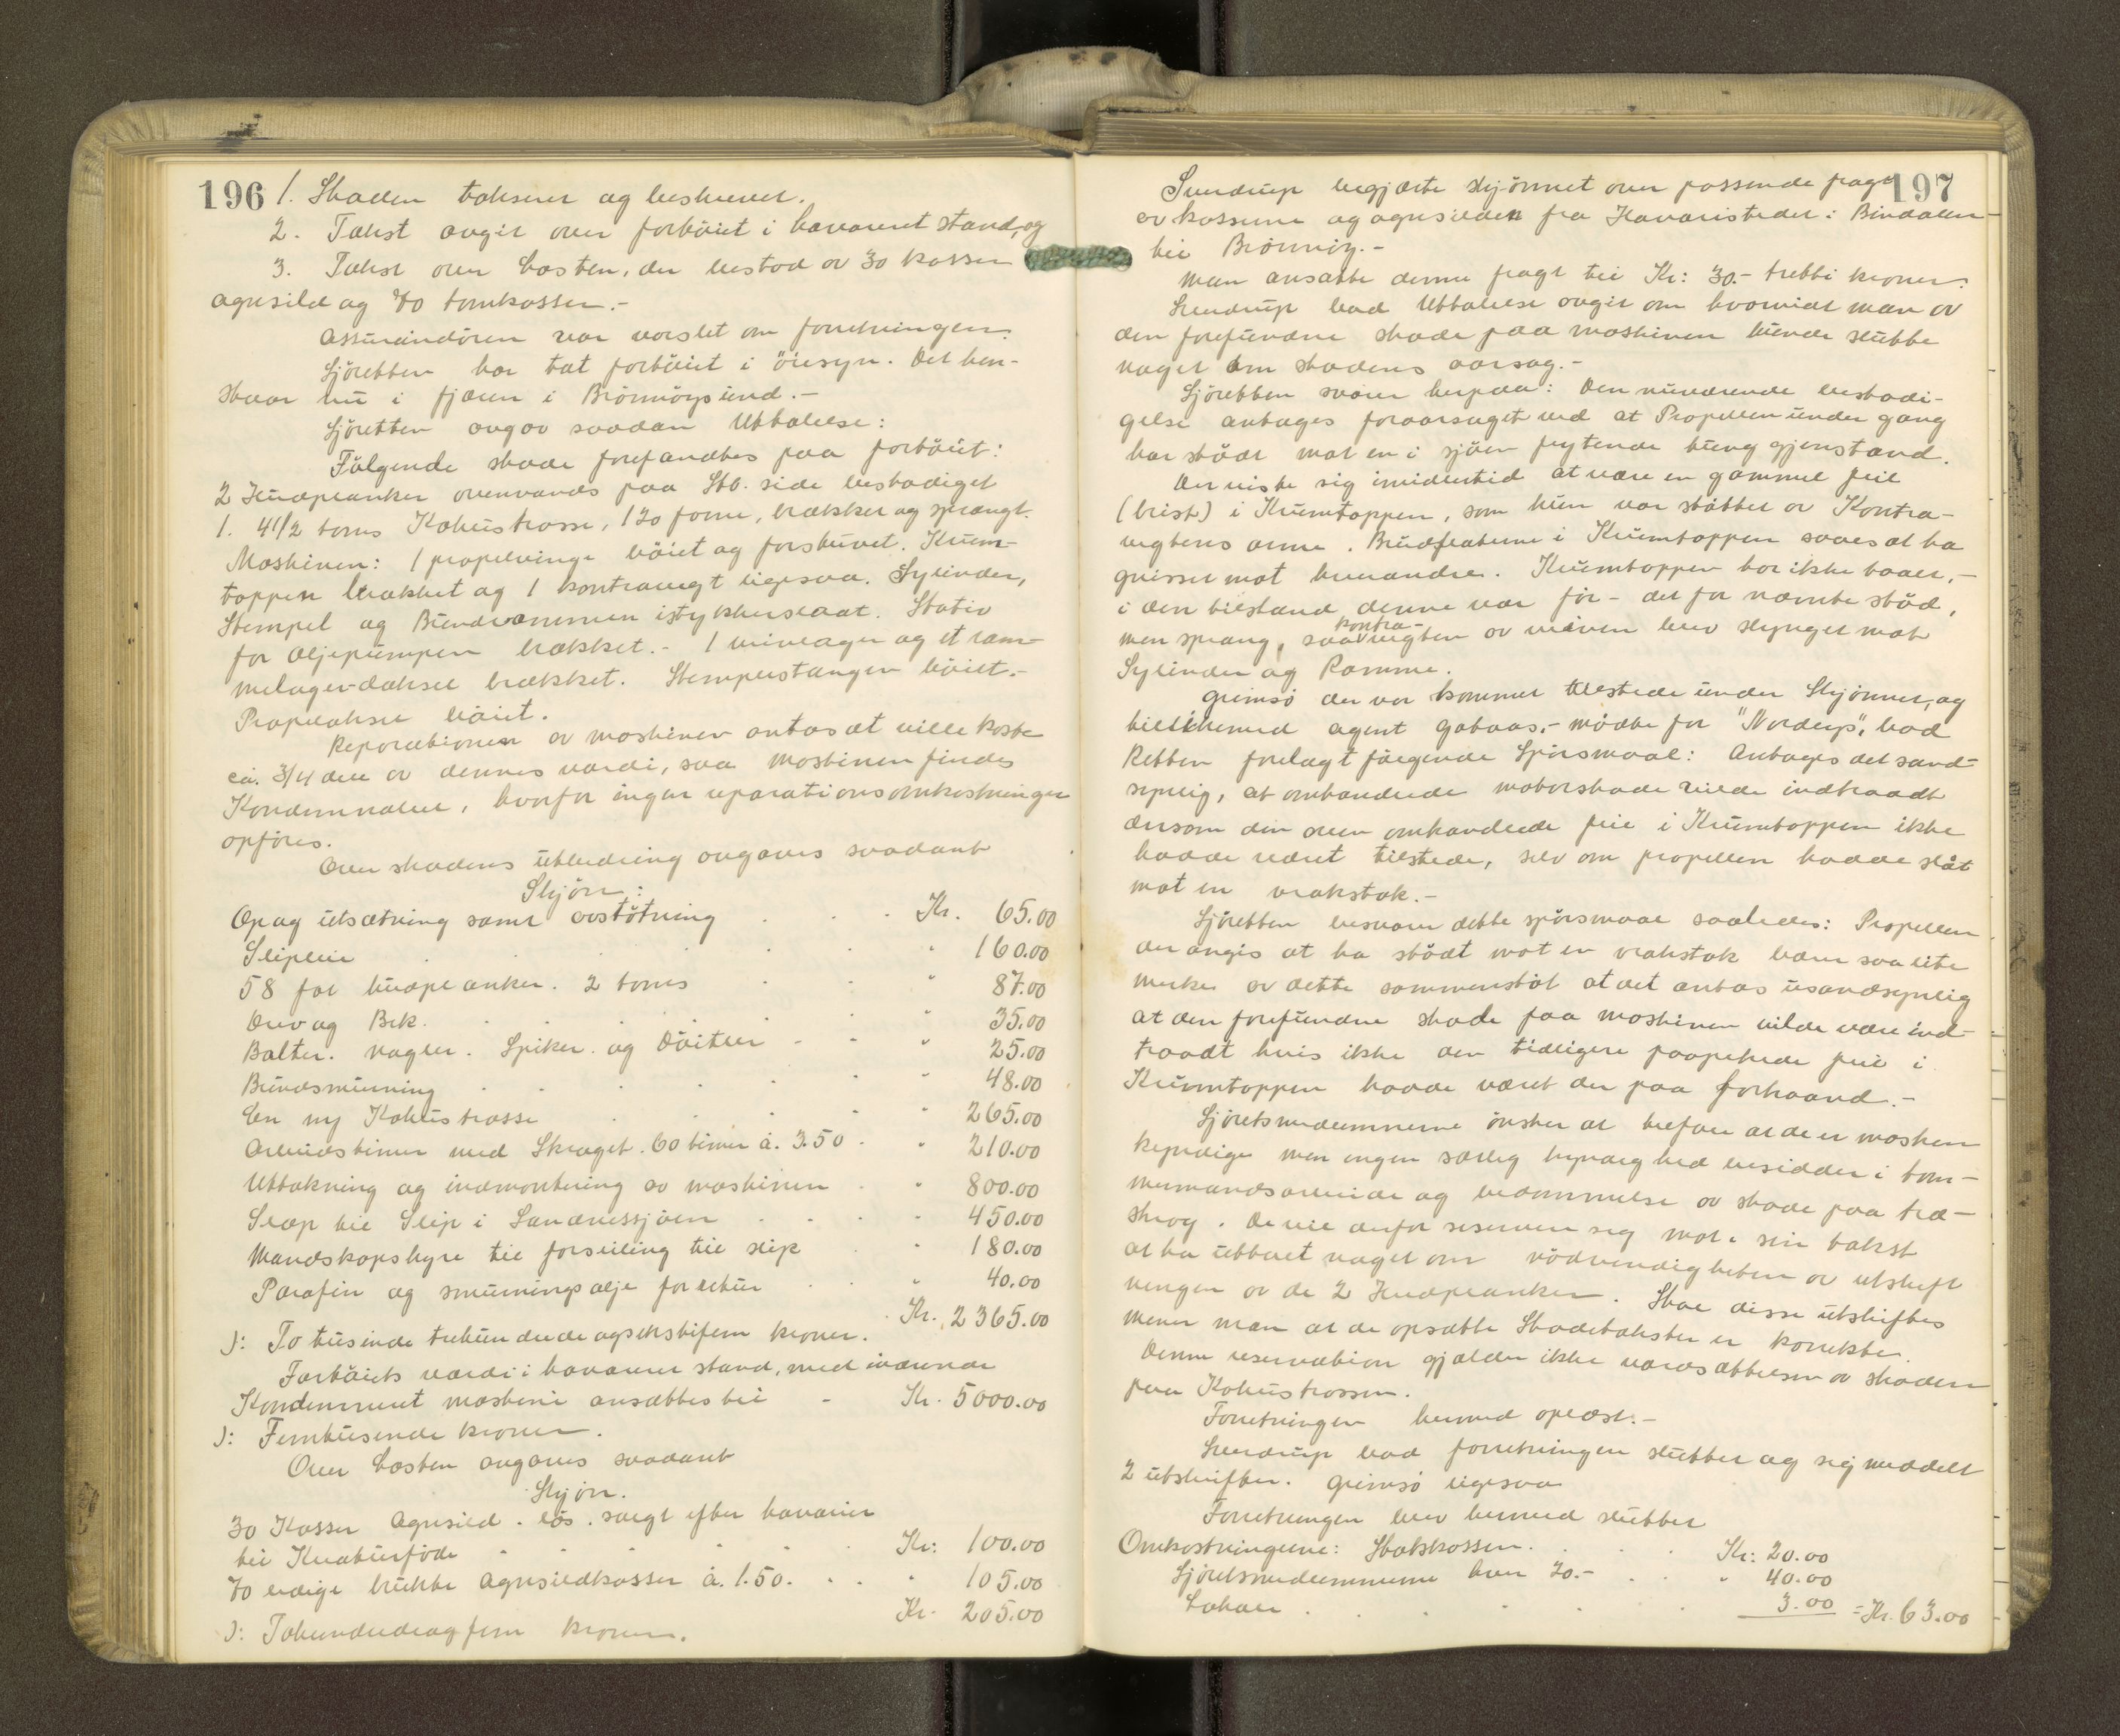 196
1. Skaden takseres og beskrevet.
2. Takst avgit over fartöiet i havareret stand, og
3. Takst over Lasten, der bestod av 30 kasser
agnsild og 70 tomkasser.-
Assurandören var varslet om forretningen.
Sjöretten har tat fartöiet i öiesyn. Det hen-
staar nu i fjæren i Brönnöysund.-
Sjöretten avgav saadan Uttalelse:
Fölgende skade forefandtes paa fartöiet:
2 Hudplanker ovenvands paa Stb. side beskadiget
1. 4 1/2 toms Kokustrosse, 120 favne, brækket og sprængt.
Maskinen: 1 propelvinge böiet og forskuvet. Krum-
tappen brækket og 1 kontravegt ligesaa. Sylinder,
Stempel og Bundrammen istykkerslaat. Stativ
for Oljepumpen brækket.- 1 veivlager og et ram-
melager-dæksel brækket. Stempelstangen böiet.-
Propelaksel böiet.
Reparationen av maskinen antas at ville koste
ca. 3/4 dele av dennes værdi, saa maskinen findes
Kondemnabel, hvorfor ingen reparationsomkostninger
opföres.
Over skadens utbedring avgaves saadant
Skjön:
Op og utsætning samt avstötning . . . Kr. 65.00
Slipleie . . . " 160.00
58 fot hudplanker. 2 toms . . " 87.00
Drev og Bek. . . . " 35.00
Bolter. nagler. Spiker. og Döitler - - " 25.00
Bundsmurning . . . " 48.00
En ny Kokustrosse . . . " 265.00
Arbeidstimer med Skroget. 60 timer á. 3.50 . " 210.00
Uttakning og indmontering av maskinen . " 800.00
Slæp til Slip i Sandnessjöen . . . " 450.00
Mandskapshyre til forseiling til slip . " 180.00
Parafin og smurningsolje for retur . . " 40.00
Kr. 2365.00
): To tusinde trehundrede og sekstifem kroner.
Fartöiets værdi i havareret stand, med iværende
Kondemneret maskine ansættes til - Kr. 5000.00
): Femtusende kroner.
Over Lasten avgaves saadant
Skjön.
30 Kasser Agnsild. lös. solgt efter havariet
til Kreaturföde . . . Kr: 100.00
70 ledige brukte Agnsildkasser á. 1.50. . . " 105.00
Kr. 205.00
): Tohundredeogfem kroner.
197
Svendrup begjærte skjönnet over passende fragt
av kasserne og agnsilden fra Havaristedet i Bindalen
til Brönnöy.-
Man ansatte denne fragt til Kr: 30.- tretti kroner.
Svendrup bad Uttalelse avgit om hvorvidt man av
den forefundne skade paa maskinen kunde slutte
noget om skadens aarsag.-
Sjöretten svarer herpaa: Den nuværende beskadi-
gelse antages foraarsaget ved at Propellen under gang
har stödt mot en i sjöen flytende tung gjenstand.
Der viste sig imidlertid at være en gammel feil
(brist) i Krumtappen, som kun var stöttet av Kontra-
vegtens arme. Brudflaterne i Krumtappen saaes at ha
gnisset mot hverandre. Krumtappen har ikke taalt,-
i den tilstand denne var för - det for nævnte stöd,
men sprang, saa kontra-vegten av veiven blev slynget mot
Sylinder og Ramme.
Grimsö der var kommet tilstede under Skjönnet, og
tillikemed agent Gabaas,- mödte for "Nordlys", bad
Retten forelagt fölgende Spörsmaal: Antages det sand-
synlig, at omhandlede motorskade vilde indtraadt
dersom den oven omhandlede feil i Krumtappen ikke
hadde været tilstede, selv om propellen hadde slåt
mot en vrakstok.-
Sjöretten besvarer dette spörsmaal saaledes: Propellen
der angis at ha stödt mot en vrakstok bærer saa lite
merker av dette sammenstöt at det antas usandsynlig
at den forefundne skade paa maskinen vilde være ind-
traadt hvis ikke den tidligere paapekede feil i
Krumtappen hadde været der paa forhaand.-
Sjöretsmedlemmerne önsker at tilföie at de er maskin
kyndige men ingen særlig kyndighed besidder i töm-
mermandsarbeide og bedömmelse av skade paa træ-
skrog. De vil derfor reservere sig mot i sin takst
at ha uttalt noget om nödvendigheten av utskift
ningen av de 2 Hudplanker. Skal disse utskiftes
mener man at de opsatte Skadetakster er korrekte.
Denne reservation gjælder ikke værdsættelsen av skaden
paa Kokustrossen.
Forretningen hermed oplæst.-
Svendrup bad forretningen sluttet og sig meddelt
2 utskrifter. Grimsö ligesaa
Forretningen blev hermed sluttet
Omkostningerne: Statskassen. . . . Kr: 20.00
Sjöretsmedlemmerne hver 20.- . . " 40.00
Lokale . . . . 3.00 = Kr. 63.00